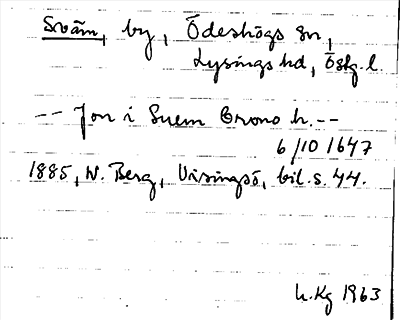 Sväm, by, Ödeshögs sn,
Lysings hd, Östg. l.
-- Jon i Suem Crono h. --
6/10 1647
1885, W. Berg, Visingsö, bil. s. 44.
h.Kg 1963